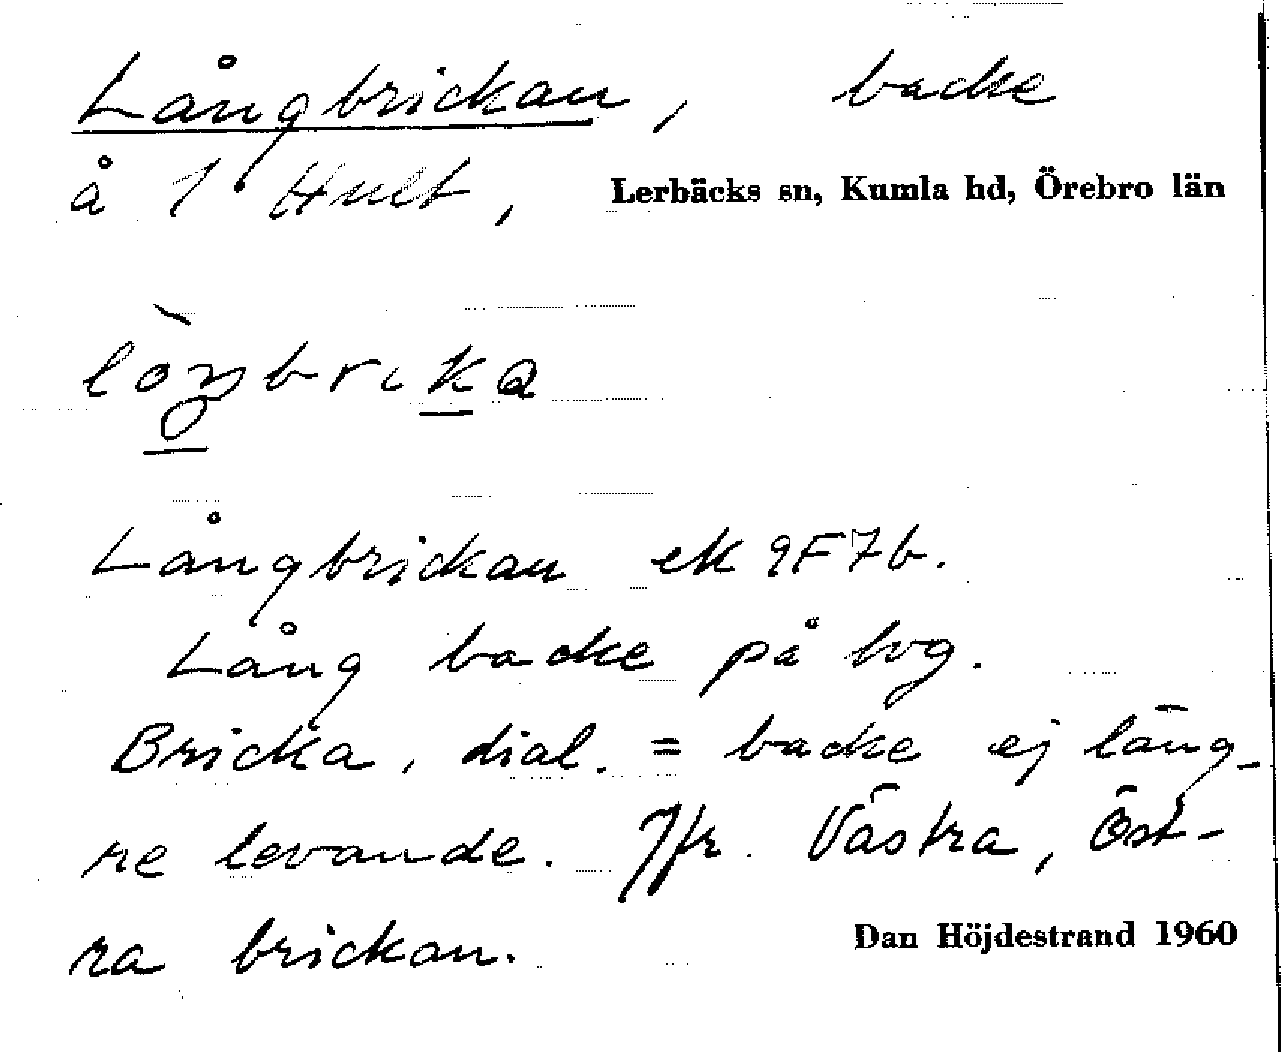 Långbrickan, backe
å 1 Hult, Lerbäcks sn, Kumla hd, Örebro län
Långbrickan ek 9F7b.
Lång backe på lvg.
Bricka, dial. = backe ej läng-
re levande. Jfr. Västra, Öst-
ra brickan.
Dan Höjdestrand 1960